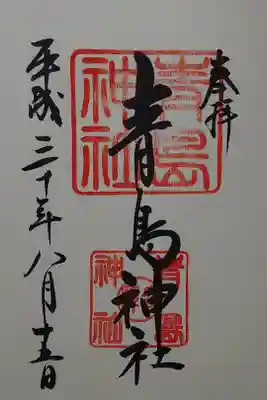 奉拝
青島神社
青島
神社
青島
神社
平成三十年八月十五日